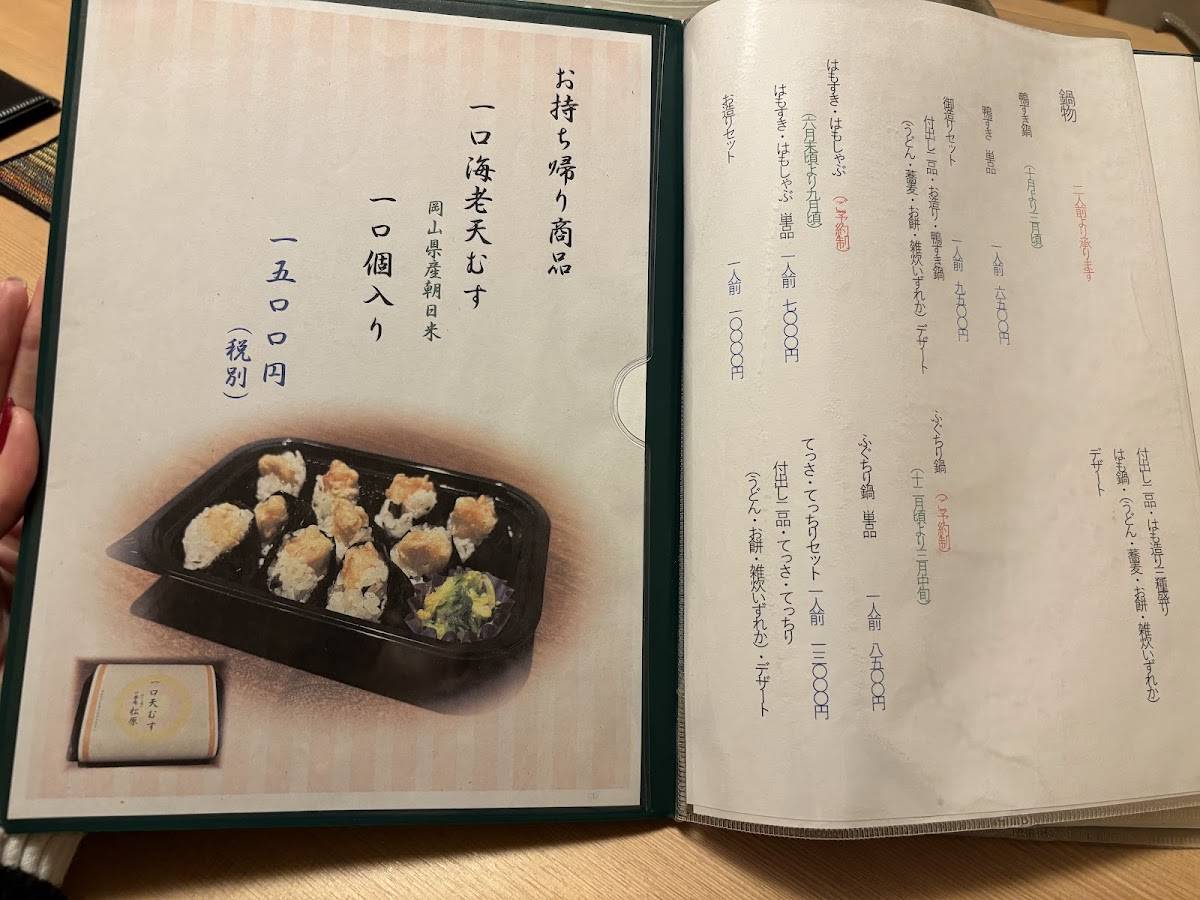 お持ち帰り商品
一口海老天むす
岡山県産朝日米
一口個入り
一五口口円
（税別）
一口天むす
松原
鍋物
二人前より承ります
鴨すき鍋 （十月より三月頃）
鴨すき 単品 一人前 六五〇〇円
御造りセット 一人前 九五〇〇円
付出し二品・お造り・鴨すき鍋
（うどん・蕎麦・お餅・雑炊いずれか） デザート
はもすき・はもしゃぶ （ご予約制）
（六月末頃より九月頃）
はもすき・はもしゃぶ 単品 一人前 七〇〇〇円
お造りセット 一人前 一〇〇〇〇円
付出し二品・はも造り二種盛り
はも鍋・（うどん・蕎麦・お餅・雑炊いずれか）
デザート
ふぐちり鍋 （ご予約制）
（十二月頃より三月中旬）
ふぐちり鍋 単品 一人前 八五〇〇円
てっさ・てっちりセット 一人前 一三〇〇〇円
付出し二品・てっさ・てっちり
（うどん・お餅・雑炊いずれか）・デザート